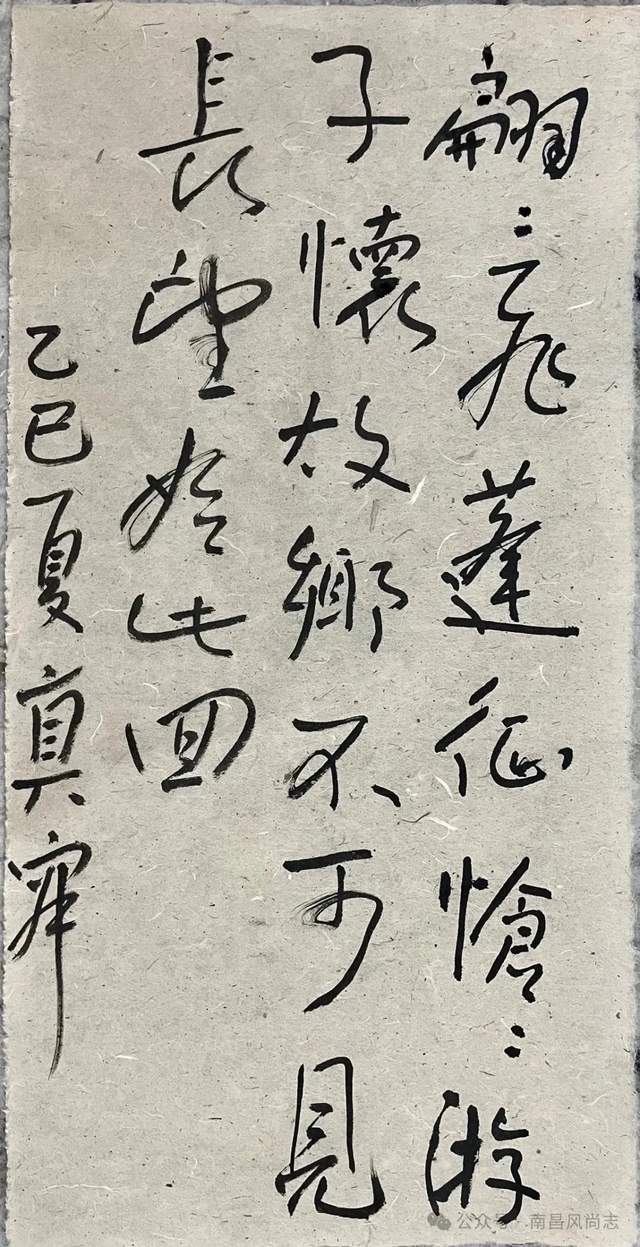 翩〻飛蓬征愴〻游
子懷故鄉不可見
長望始此回
乙巳夏真
公众号·南昌风尚志